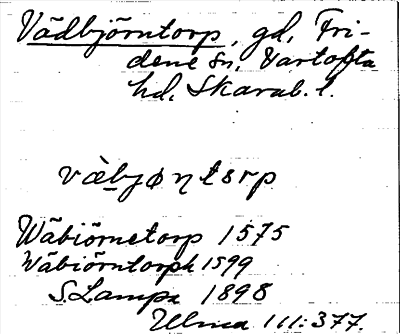 Vädbjörntorp, gd, Fri-
dene sn. Vartofta
hd. Skarab. l.
vàbjøntorp
Wäbiörnetorp 1575
Wäbiörntorph 1599
S. Lampa 1898
III: 377.